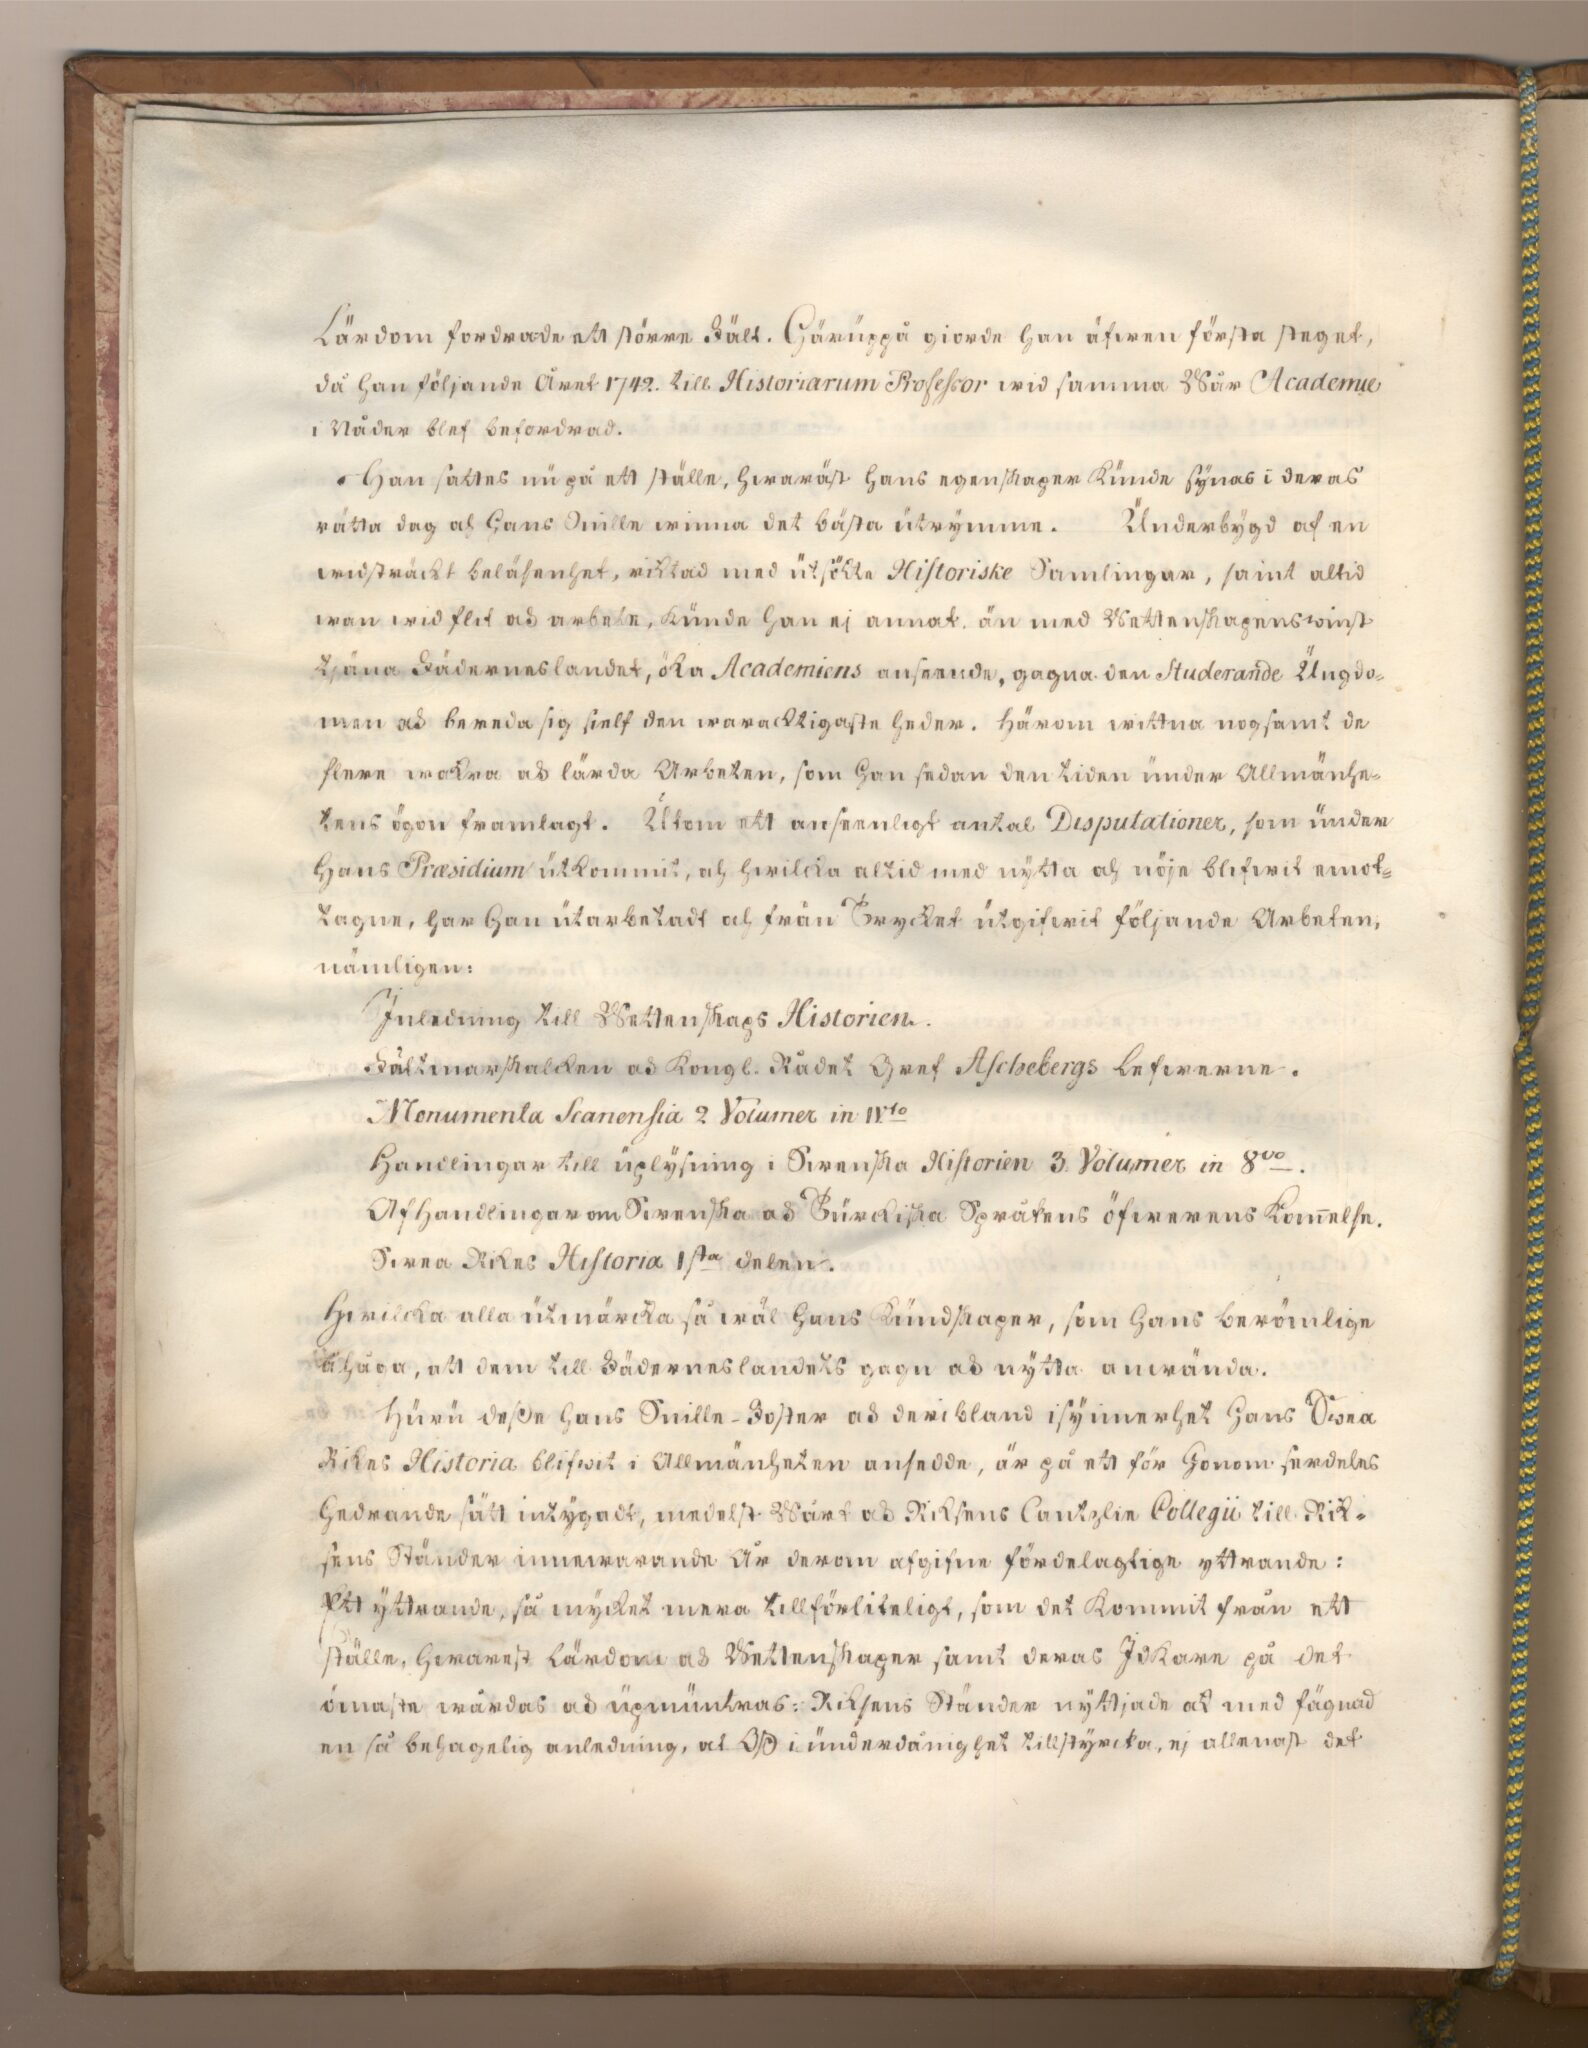 Lärdom fordrade ett större Fält. Häruppå giorde Han äfwen första steget,
då Han följande Året 1742. till Historiarum Professor wid samma Wår Academie
i Nåder blef befordrad.
Han sattes nu på ett ställe, hwaräst Hans egenskaper kunde synas i deras
rätta dag och Hans Snille winna det bästa utrymme. Underbygd af en
widsträckt beläsenhet, riktad med utsökte Historiske Samlingar, samt altid
wan wid flit och arbete, kunde Han ej annat än med Wettenskapens winst
tjäna Fäderneslandet, öka Academiens anseende, gagna den Studerande Ungdo=
men och bereda sig sielf den waracktigaste heder. Härom wittna nogsamt de
flere wackra och lärda Arbeten, som Han sedan den tiden under Allmänhe=
tens ögon framlagt. Utom ett anseenligt antal Disputationer, som under
Hans Præsidium utkommit, och hwilcka altid med nytta och nöje blifwit emot=
tagne, har Han utarbetadt och från Trycket utgifwit följande Arbeten,
nämligen:
Inledning till Wettenskaps Historien.
Fältmarskalcken och Kongl. Rådet Gref Aschebergs Lefwerne.
Monumenta Scanensia 2 Volumer in IV.to
Handlingar till uplysning i Swenska Historien 3. Volumer in 8vo.
Afhandlingar om Swenska och Turckiska Språkens öfwerens kom̄else.
Swea Rikes Historia 1sta delen.
Hwilcka alla utmärcka så wäl Hans Kundskaper, som Hans berömlige
åhåga, att dem till Fäderneslandets gagn och nytta anwända.
Huru desse Hans Snille-Foster och deribland isynnerhet Hans Swea
Rikes Historia blifwit i Allmänheten ansedde, är på ett för Honom serdeles
Hedrande sätt intygadt, medelst Wårt och Riksens Cantzlie Collegii till Rik=
sens Ständer innewarande År derom afgifne fördelagtige yttrande:
Ett yttrande, så mycket mera tillförliteligt, som det kommit från ett
ställe, hwarest Lärdom och Wettenskaper samt deras Idkare på det
ömaste wårdas och upmuntras: Riksens Ständer nyttjade ock med fägnad
en så behagelig anledning, at Oss i underdånighet tillstyrcka, ej allenast det